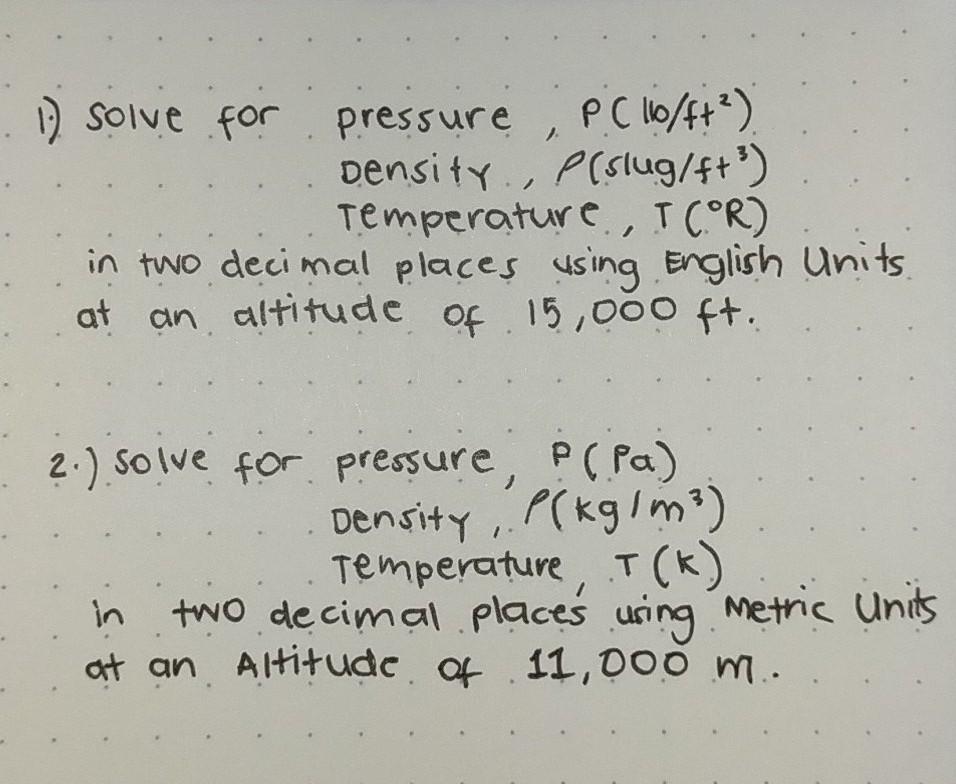 1) Solve for pressure, P(lb/ft²)
Density, ρ(slug/ft³)
Temperature, T(°R)
in two decimal places using English Units
at an altitude of 15,000 ft.
2.) Solve for pressure, P(Pa)
Density, ρ(kg/m³)
Temperature, T(K)
in two decimal places using Metric Units
at an Altitude of 11,000 m.